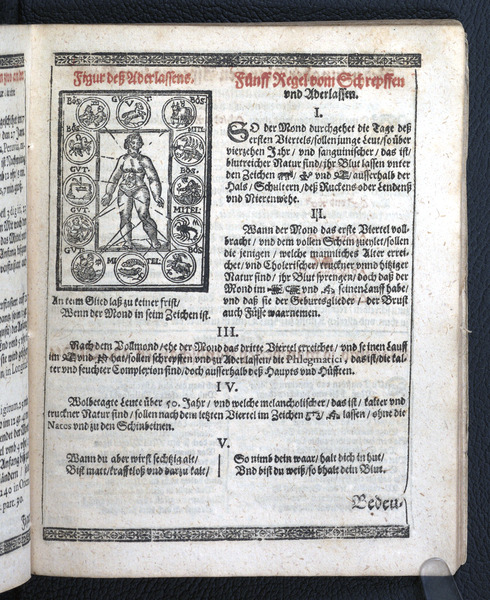 Figur deß Aderlassens.
BÖS.
GVT.
BÖS
BÖS
MITEL
GVT.
BÖS.
GVT.
MITEL:
GV
MITEL.
BÖS
An kem Glied laß zu keiner frist/
Wenn der Mond in seim Zeichen ist.
Fünff Regel vom Schrepffen
vnd Aderlassen.
I.
SO der Mond durchgehet die Tage deß
ersten Viertels/sollen junge Leut/so über
vierzehen Jahr/ vnd sanguinischer/ das ist/
blutreicher Natur sind/ jhr Blut lassen vnter
den Zeichen vnd ausserhalb der
Hals/ Schultern/deß Ruckens oder Lendenß
vnd Nierenwehe.
II.
Wann der Mond das erste Viertel voll-
bracht/ vnd dem vollen Schein zueylet/sollen
die jenigen/ welche mannliches Alter errei-
chet/vnd Cholerischer truckner vnnd hitziger
Natur sind/ jhr Blut sprengen/ doch daß der
Mond im vnd seinen Lauff habe/
vnd daß sie der Geburtsglieder/ der Brust
auch Füsse warnemen.
III.
Nach dem Vollmond/ehe der Mond das dritte Viertel erreichet/ vnd seinen Lauff
im vnd hat/sollen schrepffen vnd zu Aderlassen/ die Phlegmatici, das ist/die kal-
ter vnd feuchter Complexion sind/doch ausserhalb deß Haupts vnd Hüfften.
IV.
Wolbetagte Leute über 50. Jahr/ vnd welche melancholischer/ das ist/ kalter vnd
truckner Natur sind/ sollen nach dem letzten Viertel im Zeichen lassen/ ohne die
Nates vnd zu den Schinbeinen.
V.
Wann du aber wirst sechtzig alt/
Bist matt/krafftloß vnd darzu kalt/
So nimb dein waar/ halt dich in hut/
Vnd bist du weiß/so bhalt dein Blut.
Bedeu-